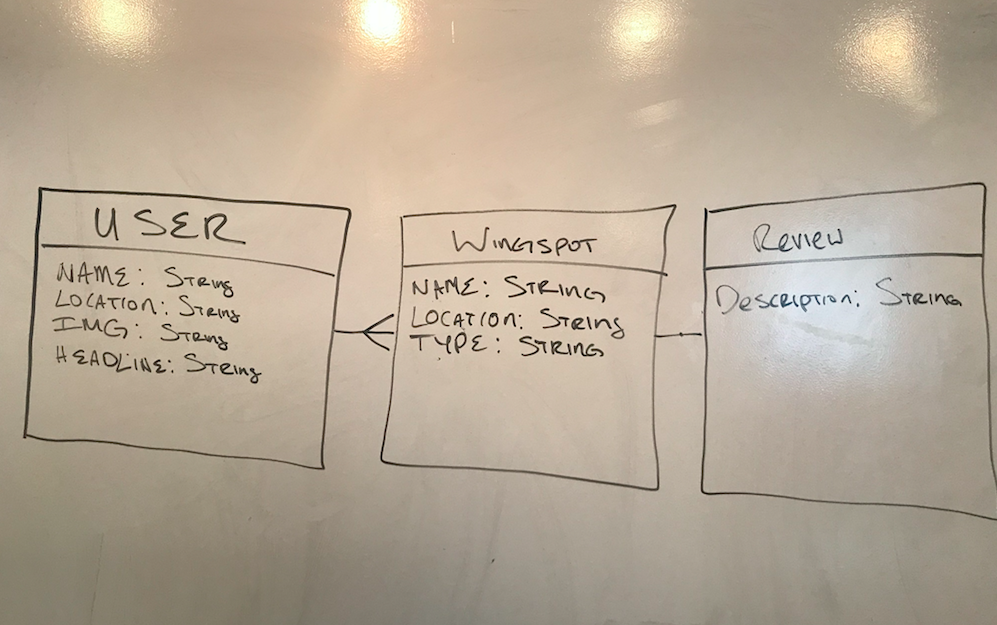 USER
NAME: STRING
LOCATION: STRING
IMG: STRING
HEADLINE: STRING
WINGSPOT
NAME: STRING
LOCATION: STRING
TYPE: STRING
REVIEW
DESCRIPTION: STRING